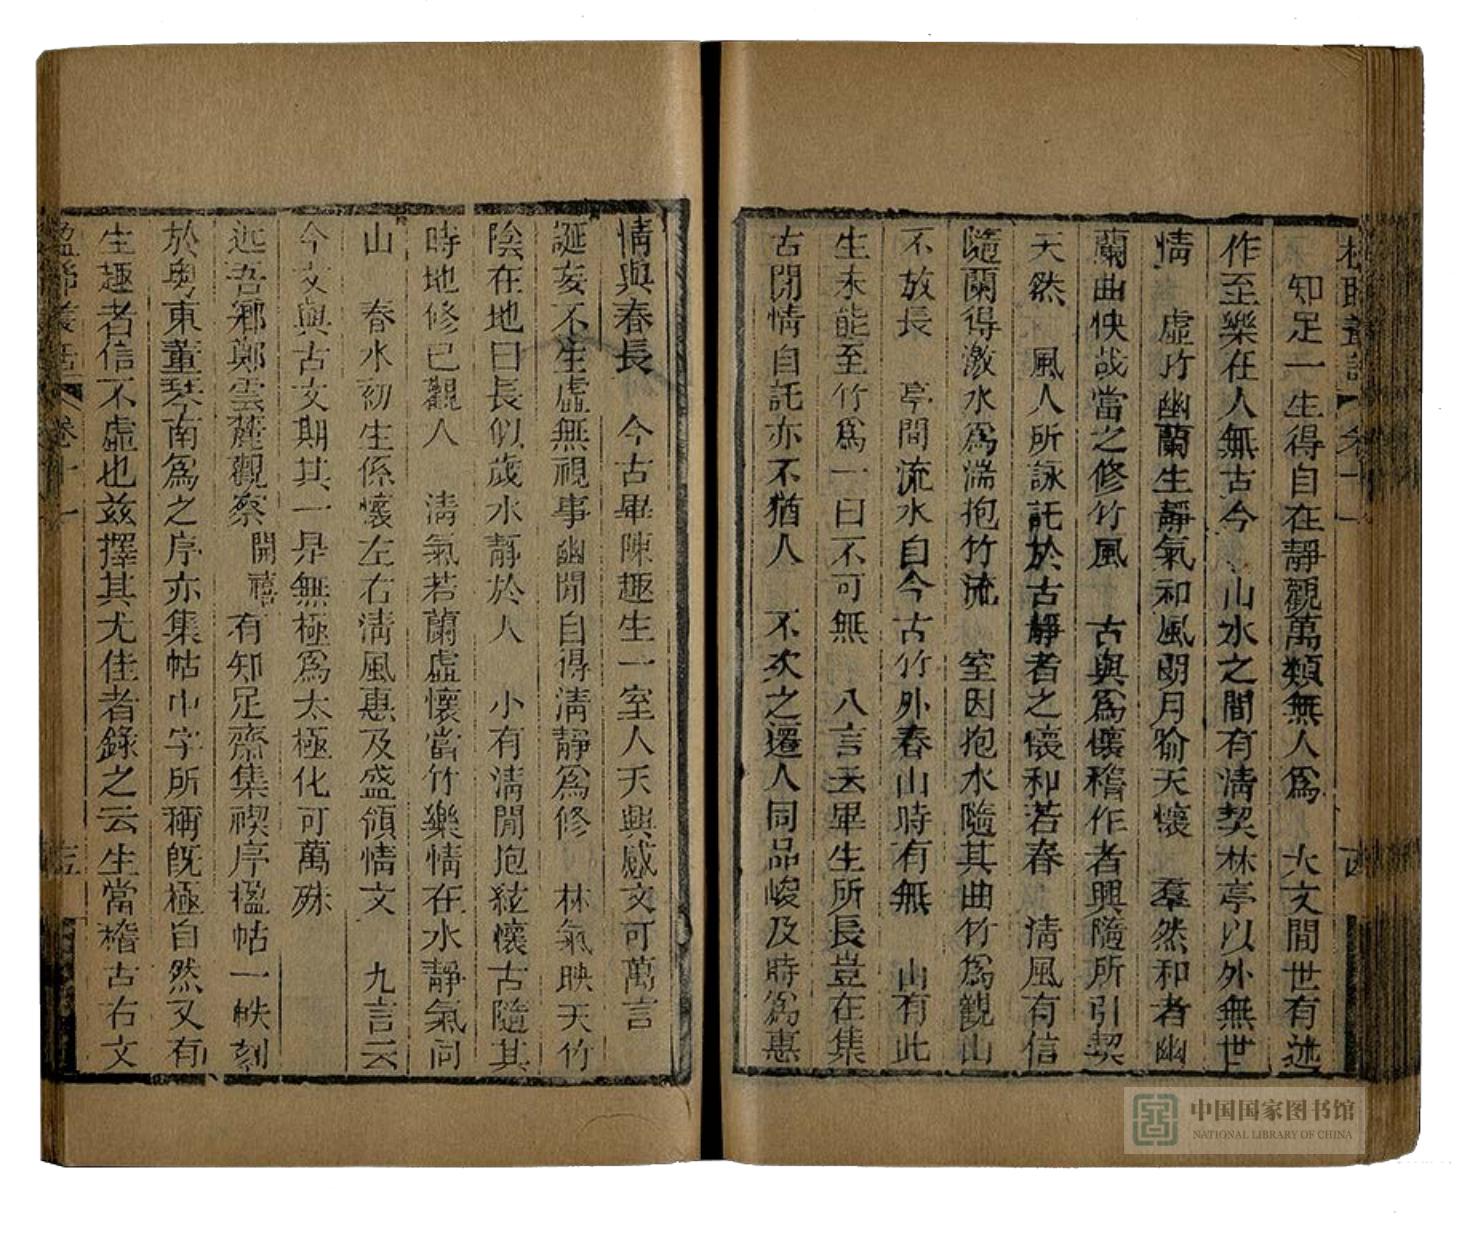 知足一生得自在靜觀萬類無人爲　大文閒世有述
作至樂在人無古今　山水之間有清契林亭以外無世
情　虛竹幽蘭生靜氣和風朗月喻天懷　羣然和者幽
蘭曲快哉當之修竹風　古與爲懷稽作者興隨所引契
天然　風人所詠託於古靜者之懷和若春　清風有信
隨蘭得激水爲湍抱竹流　室因抱水隨其曲竹爲觀山
不放長　亭間流水自今古竹外春山時有無　山有此
生未能至竹爲一日不可無　八言云畢生所長豈在集
古閒情自託亦不猶人　不次之遷人同品峻及時爲惠
情與春長　今古畢陳趣生一室人天興感文可萬言
誕妄不生虛無視事幽閒自得清靜爲修　林氣映天竹
陰在地日長似歲水靜於人　小有清閒抱絃懷古隨其
時地修己觀人　清氣若蘭虛懷當竹樂情在水靜氣同
山　春水初生係懷左右清風惠及盛領情文　九言云
今文與古文期其一是無極爲太極化可萬殊
近吾鄉鄭雲麓觀察開禧有知足齋集禊序楹帖一帙刻
於粵東董琴南爲之序亦集帖中字所稱旣極自然又有
生趣者信不虛也兹擇其尤佳者錄之云生當稽古右文
楹聯叢話　卷十一